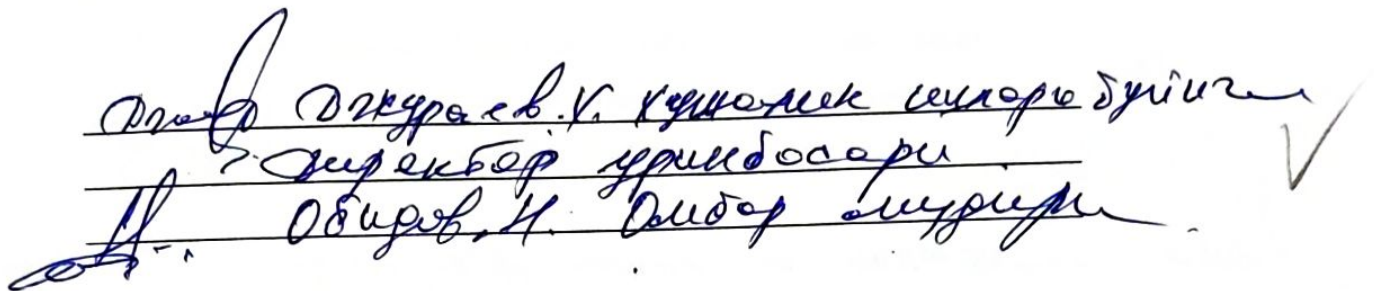 Джураев.Х. Хужалик ишлари буйинча
директор уринбосари
Обидов.Н. Омбор мудири